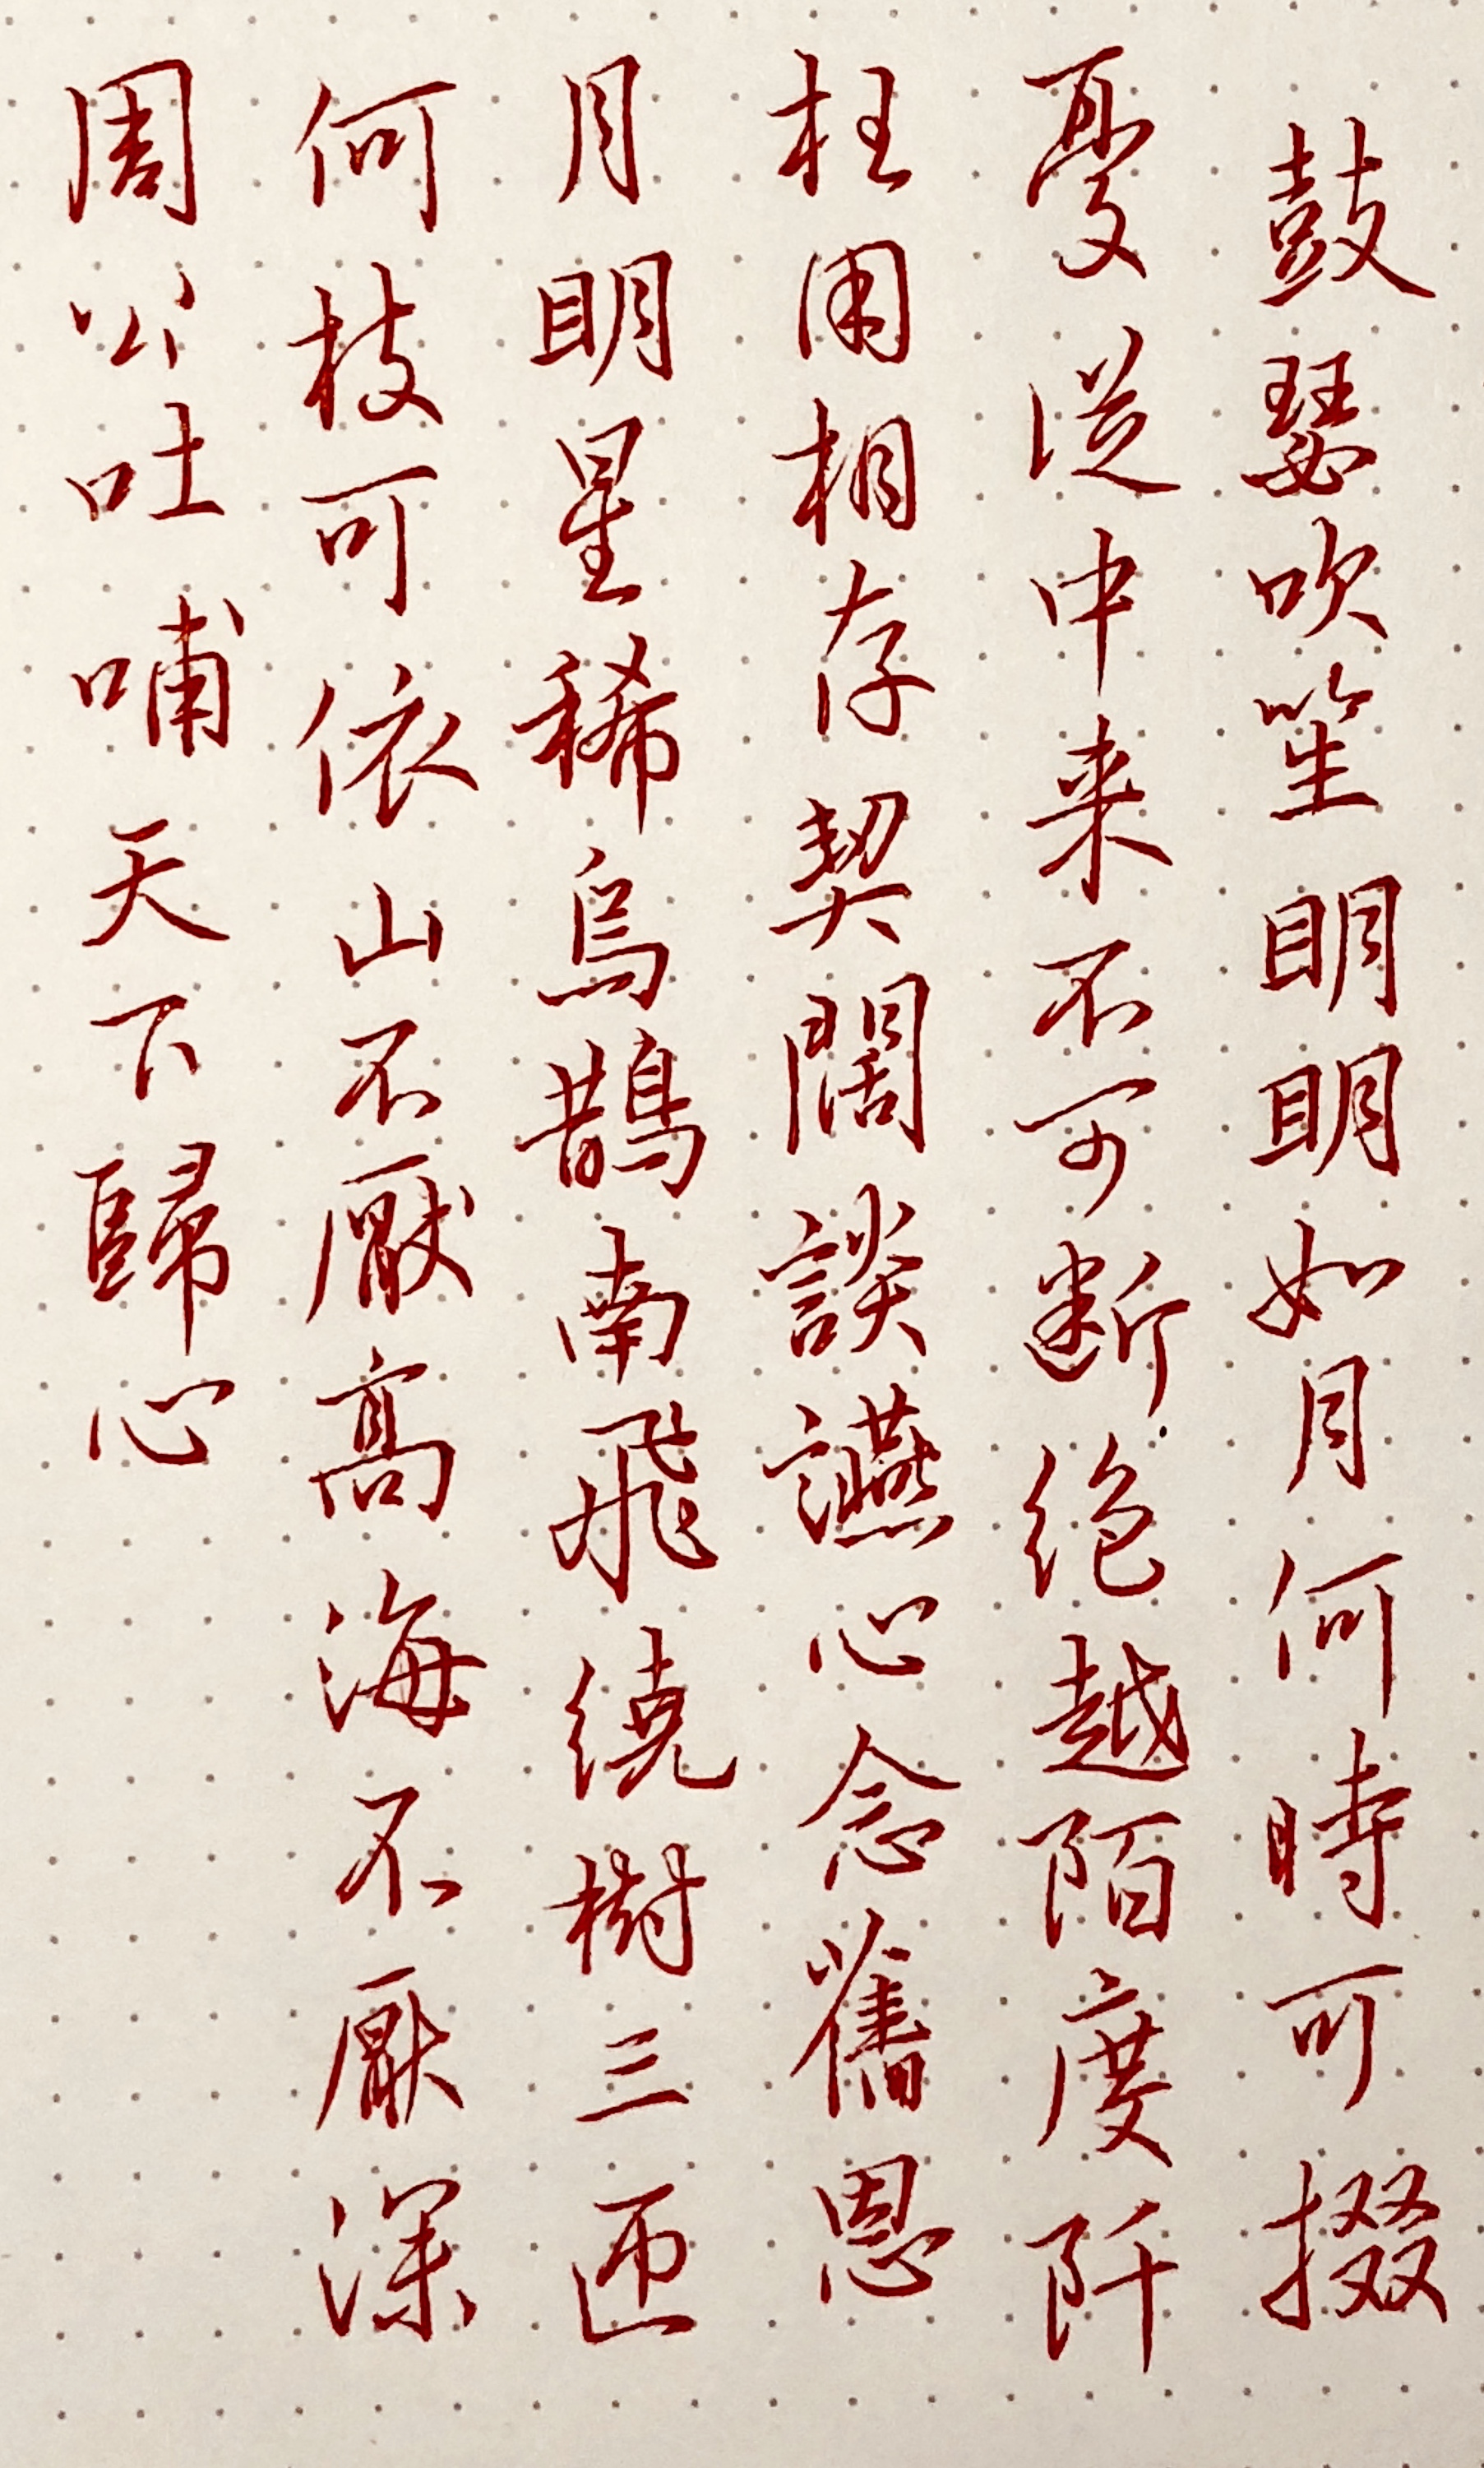 鼓瑟吹笙明明如月何時可掇
憂從中来不可断絕越陌度阡
枉用相存契闊談讌心念舊恩
月明星稀烏鵲南飛繞樹三匝
何枝可依山不厭高海不厭深
周公吐哺天下歸心